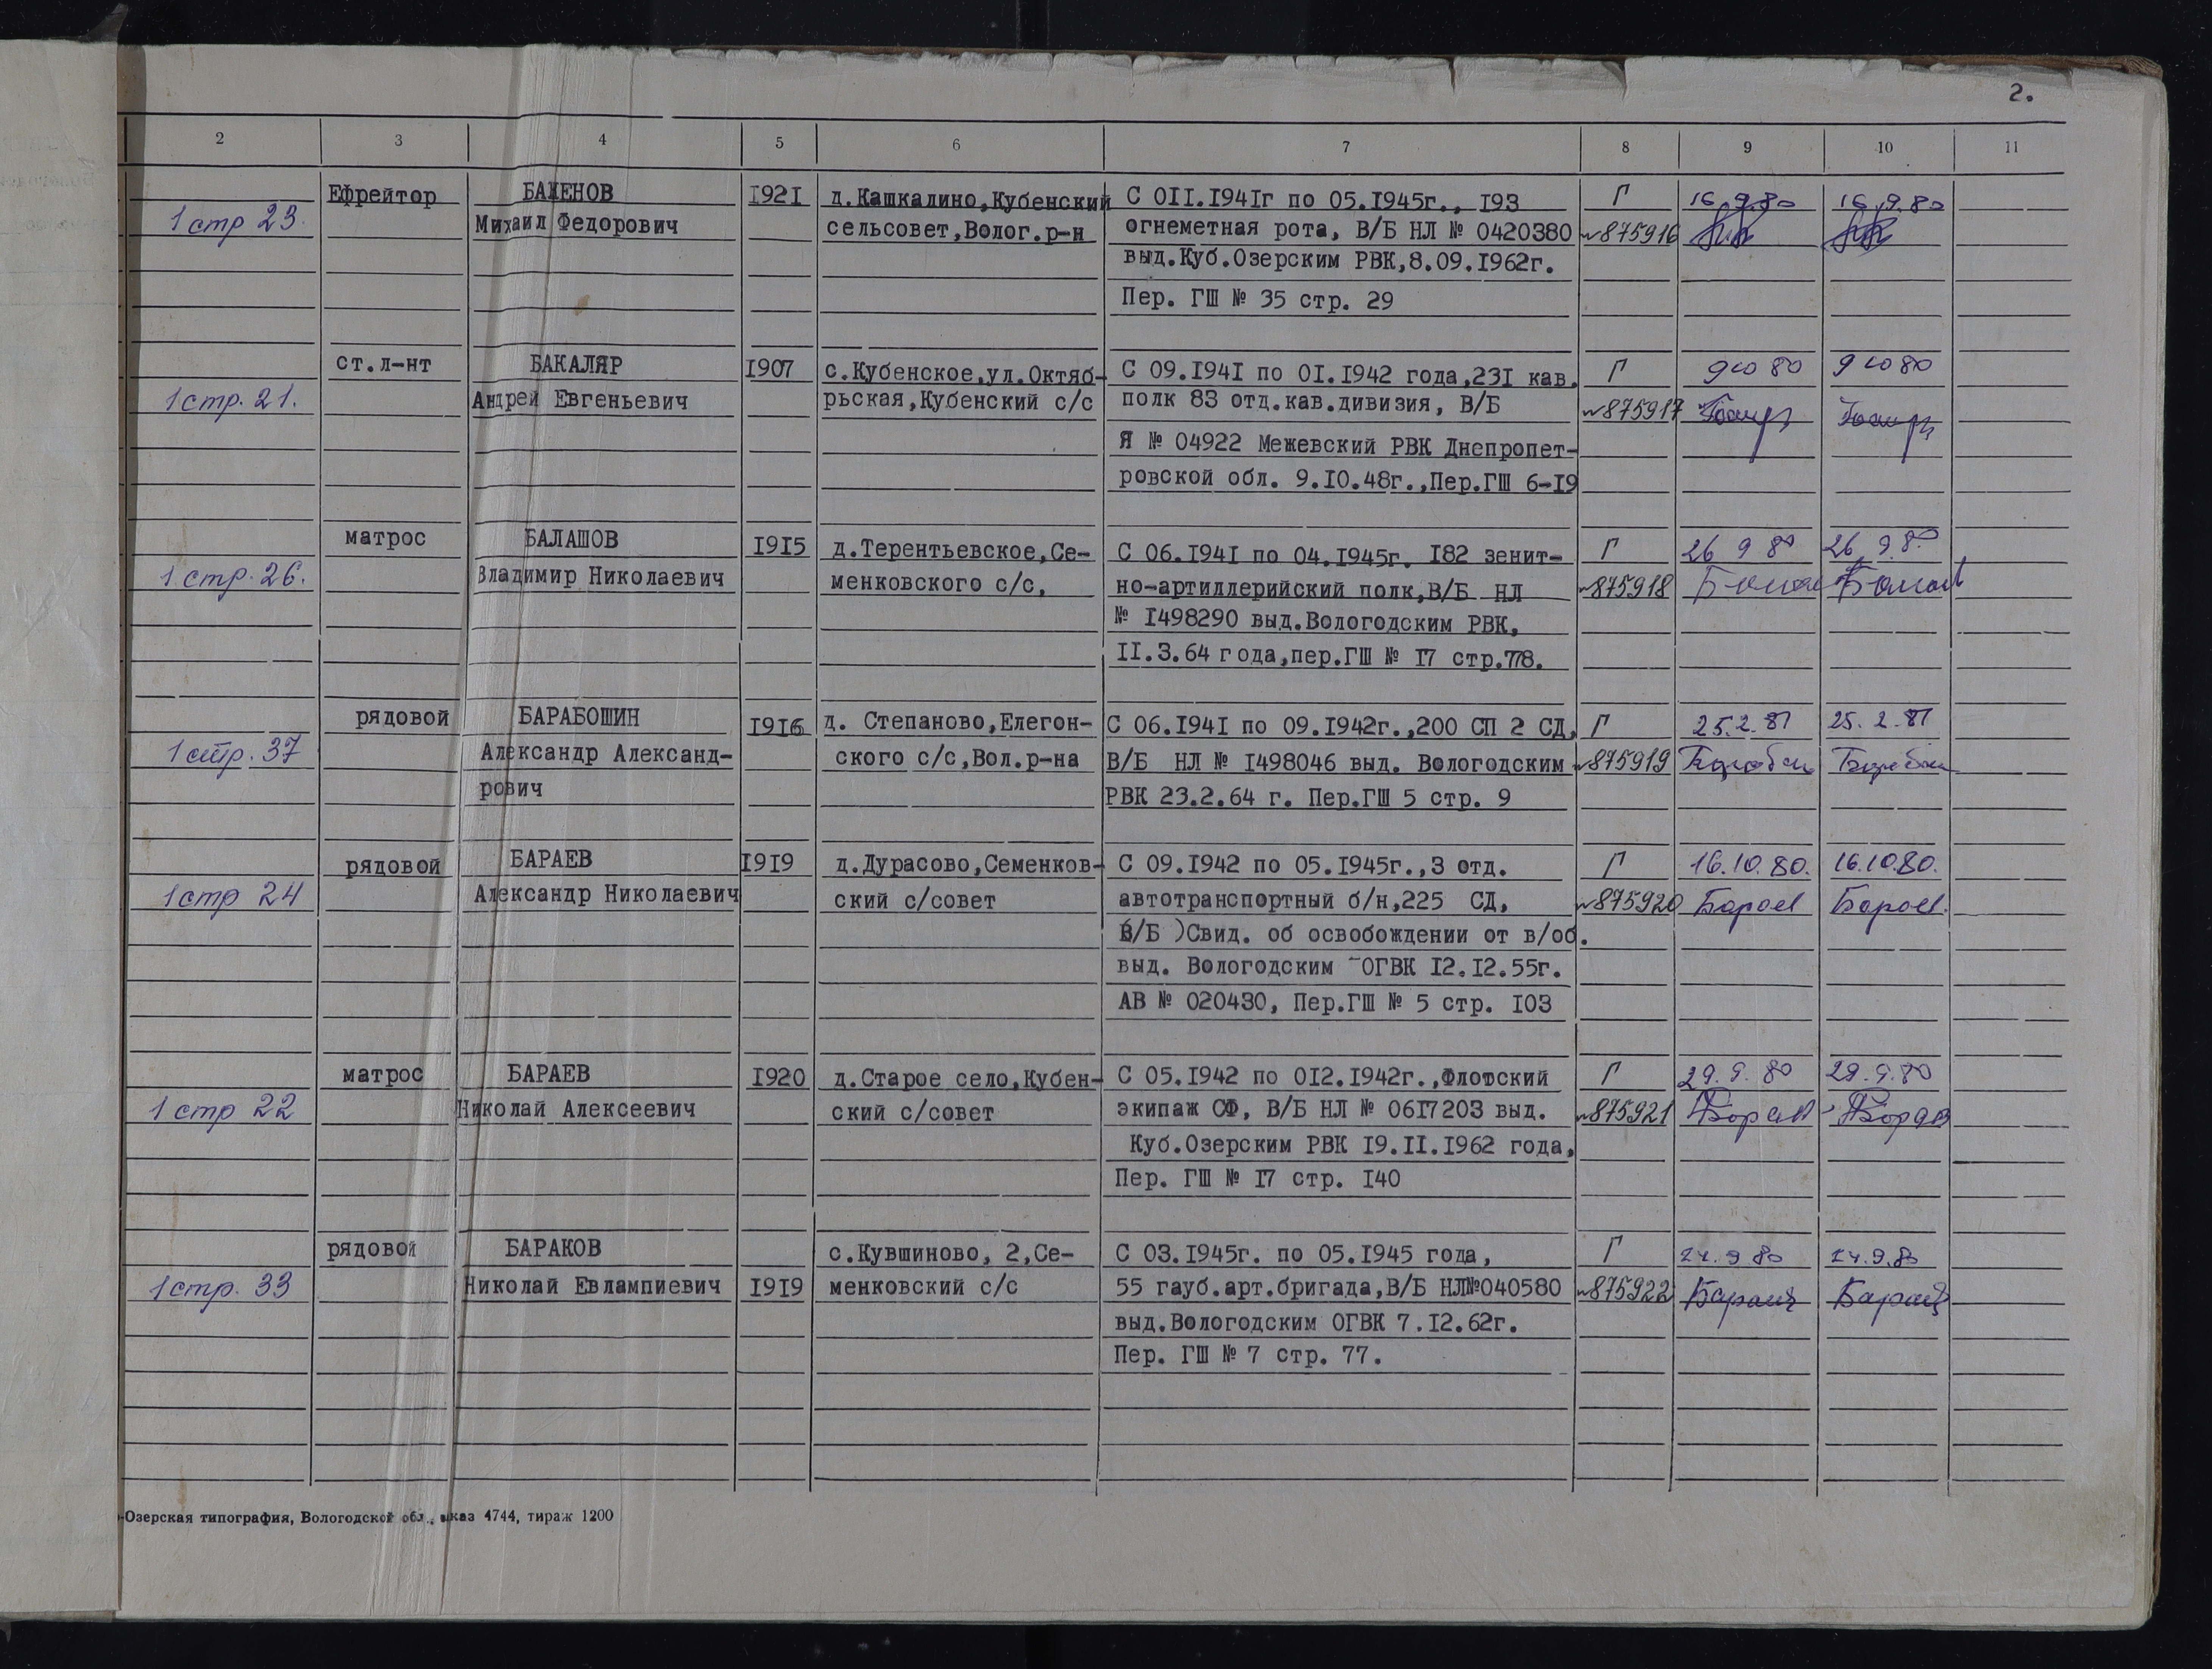 2.
2 3 4 5 6 7 8 9 10 11
Ефрейтор БАЖЕНОВ 1921 д.Кашкалино,Кубенский С 011.1941г по 05.1945г., 193 Г 16.9.80 16.9.80
1 стр 23. Михаил Федорович сельсовет,Волог.р-н огнеметная рота, В/Б НЛ № 0420380 №875916
выд.Куб.Озерским РВК,8.09.1962г.
Пер. ГШ № 35 стр. 29
ст.л-нт БАКАЛЯР 1907 с.Кубенское,ул.Октяб- С 09.1941 по 01.1942 года,231 кав. Г 9 10 80 9 10 80
1 стр. 21. Андрей Евгеньевич рьская,Кубенский с/с полк 83 отд.кав.дивизия, В/Б №875917
Я № 04922 Межевский РВК Днепропет-
ровской обл. 9.10.48г.,Пер.ГШ 6-19
матрос БАЛАШОВ 1915 д.Терентьевское,Се- С 06.1941 по 04.1945г. 182 зенит- Г 26 9 80 26 9 80
1 стр. 26. Владимир Николаевич менковского с/с, но-артиллерийский полк,В/Б НЛ №875918
№ 1498290 выд.Вологодским РВК,
11.3.64 года,пер.ГШ № 17 стр.778.
рядовой БАРАБОШИН 1916 д. Степаново,Елегон- С 06.1941 по 09.1942г.,200 СП 2 СД, Г 25.2.81 25.2.81
1 стр. 37 Александр Александ- ского с/с,Вол.р-на В/Б НЛ № 1498046 выд. Вологодским №875919
рович РВК 23.2.64 г. Пер.ГШ 5 стр. 9
рядовой БАРАЕВ 1919 д.Дурасово,Семенков- С 09.1942 по 05.1945г.,3 отд. Г 16.10.80. 16.10.80.
1 стр 24 Александр Николаевич ский с/совет автотранспортный б/н,225 СД, №875920
В/Б )Свид. об освобождении от в/об.
выд. Вологодским ОГВК 12.12.55г.
АВ № 020430, Пер.ГШ № 5 стр. 103
матрос БАРАЕВ 1920 д.Старое село,Кубен- С 05.1942 по 012.1942г.,Флотский Г 29.9.80 29.9.80
1 стр 22 Николай Алексеевич ский с/совет экипаж СФ, В/Б НЛ № 0617203 выд. №875921
Куб.Озерским РВК 19.11.1962 года,
Пер. ГШ № 17 стр. 140
рядовой БАРАКОВ с.Кувшиново, 2,Се- С 03.1945г. по 05.1945 года, Г 24.9.80 24.9.80
1 стр. 33 Николай Евлампиевич 1919 менковский с/с 55 гауб.арт.бригада,В/Б НЛ№040580 №875922
выд.Вологодским ОГВК 7.12.62г.
Пер. ГШ № 7 стр. 77.
-Озерская типография, Вологодской обл., заказ 4744, тираж 1200